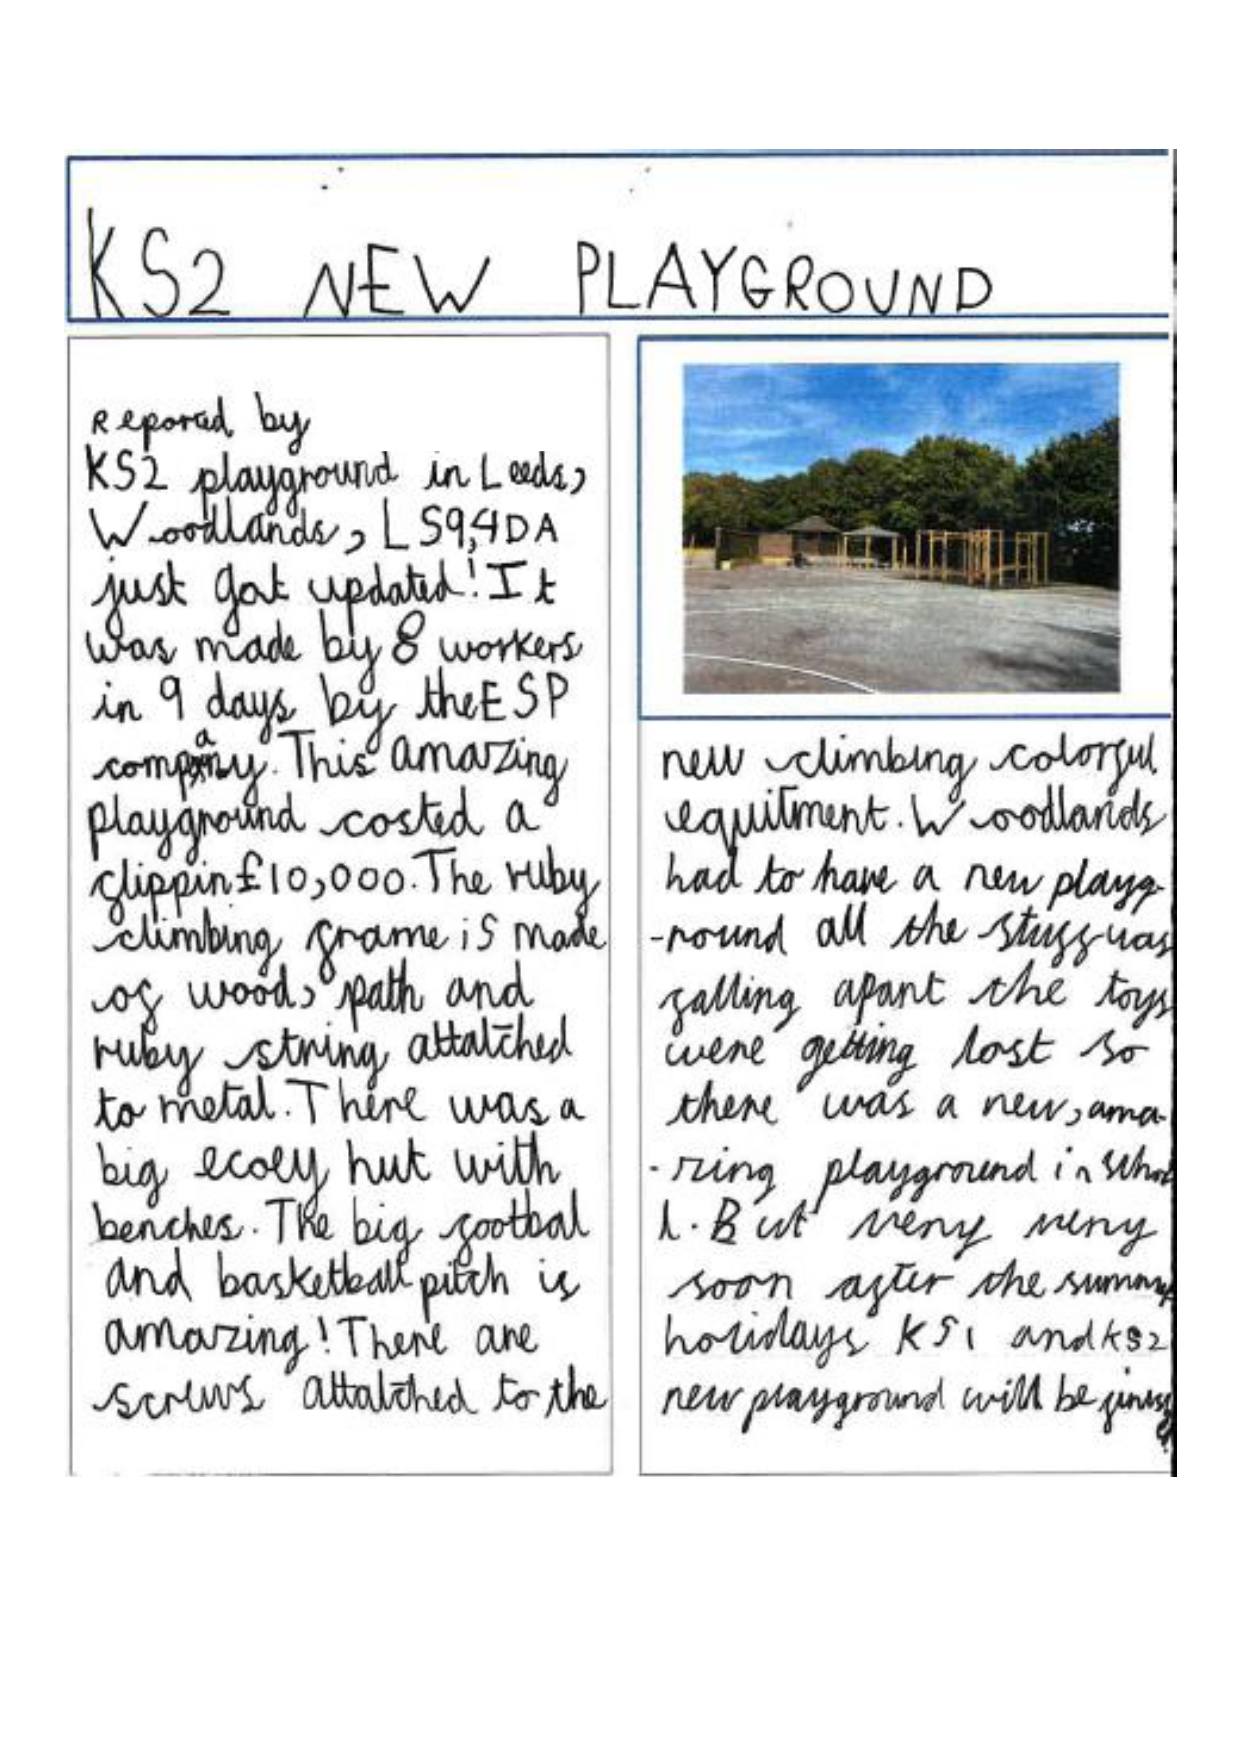 KS2 NEW PLAYGROUND
Repored by
KS2 playground in Leeds,
Woodlands, LS9,4DA
just got updated! It
was made by 8 workers
in 9 days by the ESP
company. This amazing
playground costed a
flippin £10,000. The ruby
climbing frame is made
of wood, path and
ruby string attatched
to metal. There was a
big ecoey hut with
benches. The big footbal
and basketball pitch is
amazing! There are
screws attatched to the
new climbing colorful
equitment. Woodlands
had to have a new playg-
-round all the stuff was
falling apart the toys
were getting lost so
there was a new, ama-
-zing playground in schoo
l. But very very
soon after the summer
holidays KS1 and KS2
new playground will be